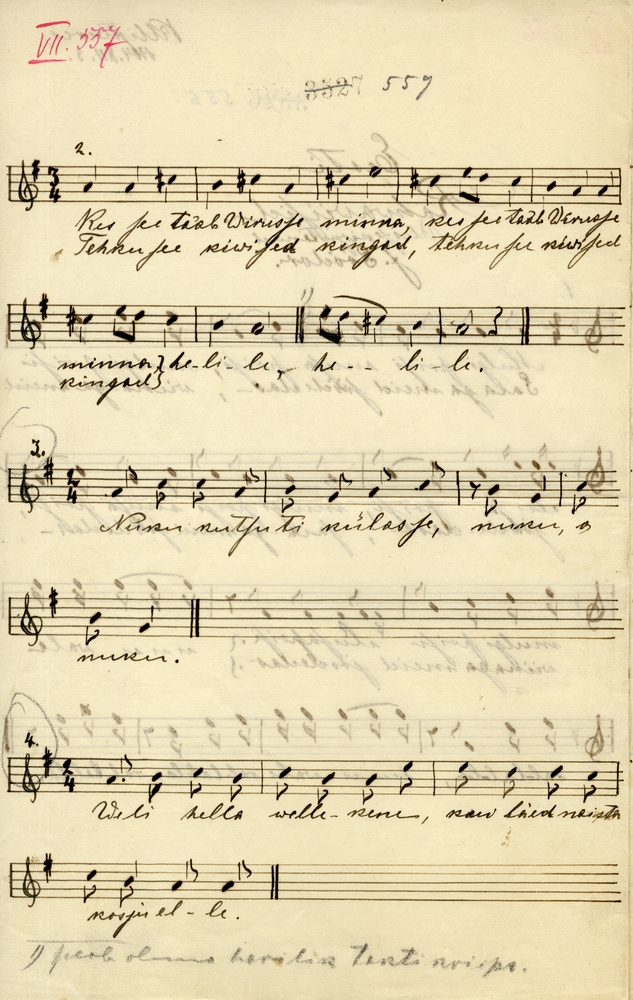 VII. 557
3527 557
2.
Kes see tääb Wirusse minna, kes see tääb Wirusse
Tehku see kiwised kingad, tehku see kiwised
minna, he-li-le, he- - li-le.
kingad
3.
Nuku kutsuti külasse, nuku, o
nuku.
4.
Weli hella welle-kene, kuu läed naista
kosjuel-le.
1) peab olema harilik takti